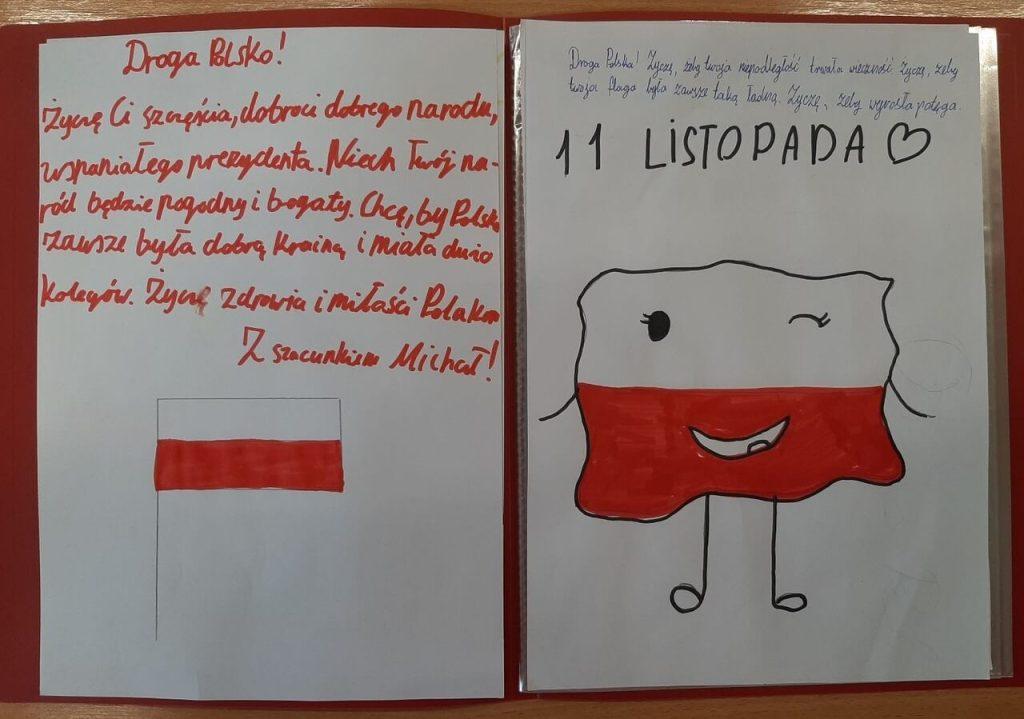 Droga Polsko!
Życzę Ci szczęścia, dobroci dobrego narodu,
wspaniałego prezydenta. Niech Twój na-
ród będzie pogodny i bogaty. Chcę, by Polska
zawsze była dobrą krainą i miała dużo
kolegów. Życzę zdrowia i miłości Polakom
Z szacunkiem Michał!
Droga Polska! Życzę, żeby twoja niepodległość trwała wieczność. Życzę, żeby
twoja flaga była zawsze taką ładną. Życzę, żeby wyrosła potęga.
11 LiSTOPADA